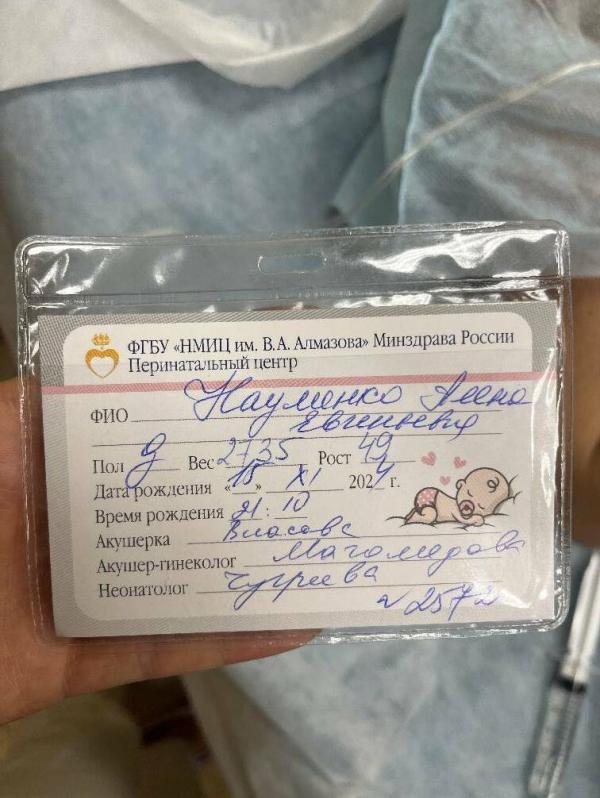 ФГБУ «НМИЦ им. В.А. Алмазова» Минздрава России
Перинатальный центр
ФИО Науменко Алена
Евгеньевна
Пол д Вес 2735 Рост 49
Дата рождения «18» XI 2024 г.
Время рождения 21:10
Акушерка Власова
Акушер-гинеколог Магомедова
Неонатолог Чугреева
~ 2572